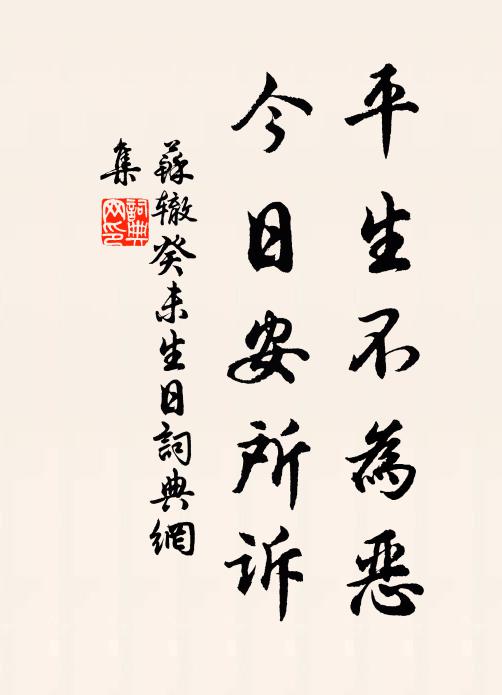 平生不為惡
今日安所诉
蘇辙癸未生日詞典網
集
詞典
网印